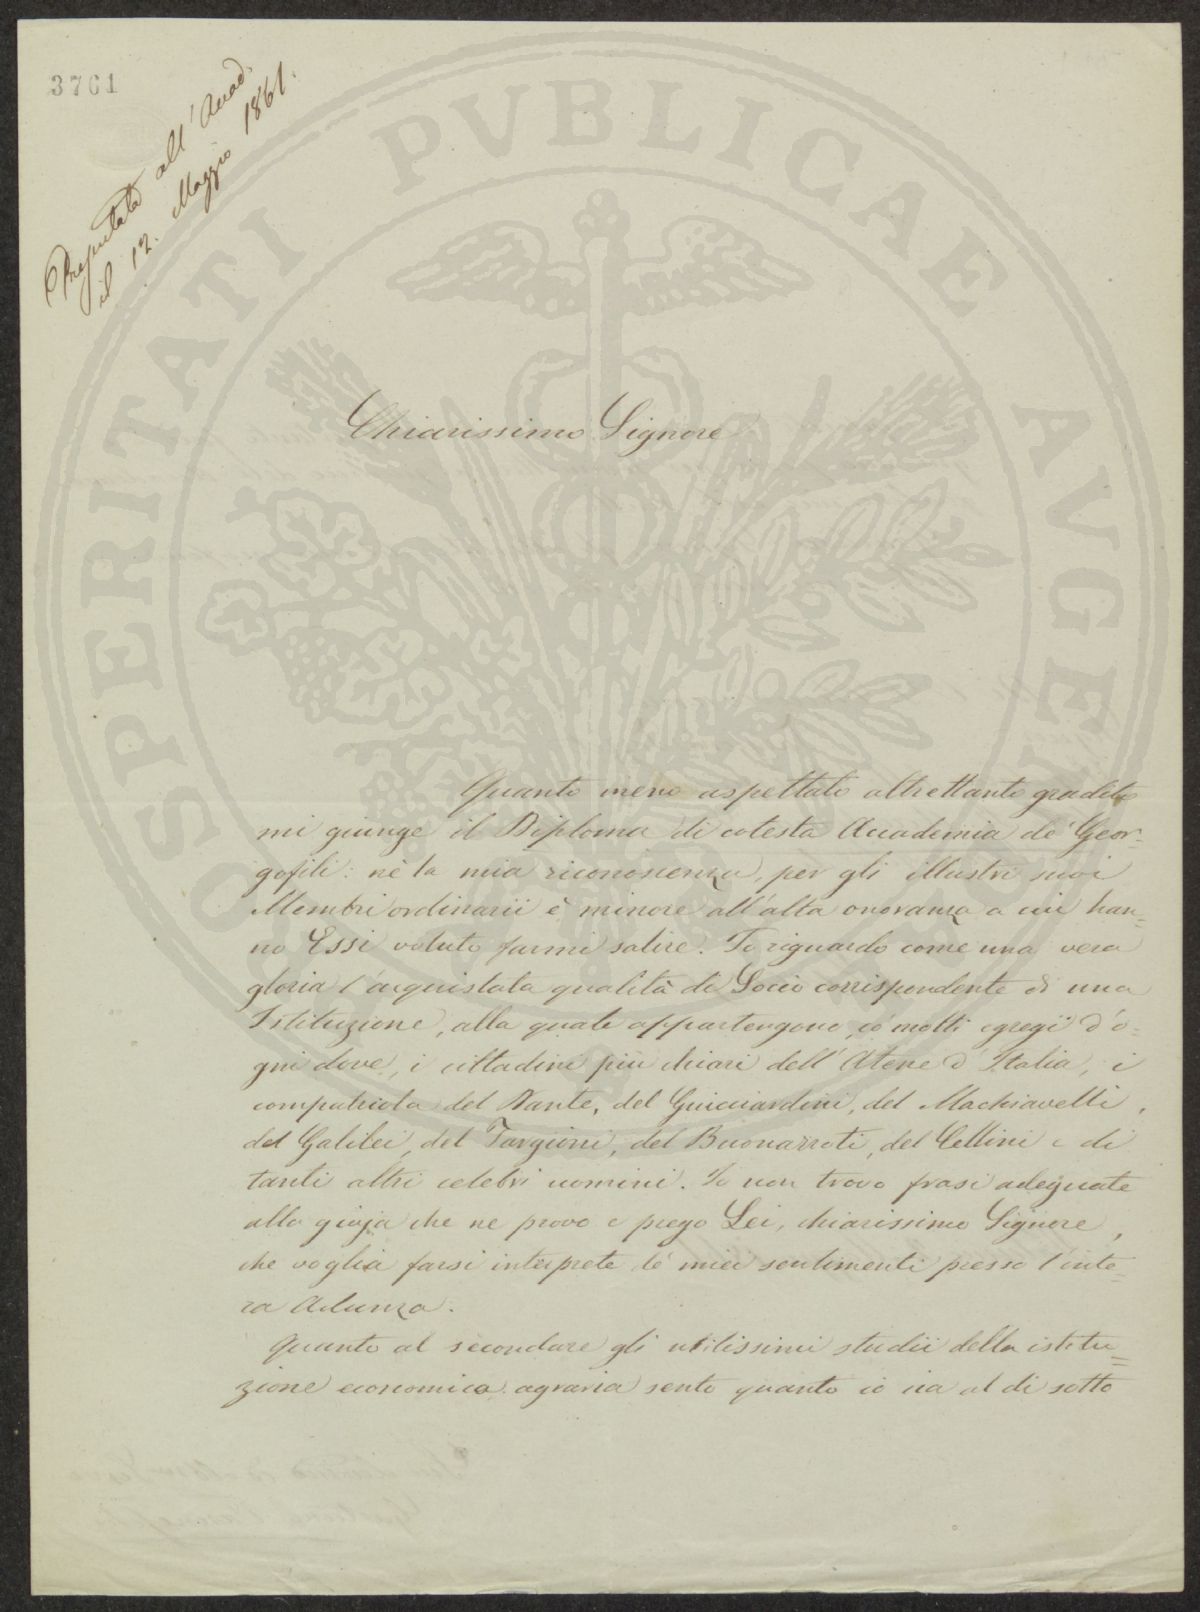 3761
Presentata all'Accad.
il 12. Maggio 1861.
PROSPERITATI PVBLICAE AVGEN
Chiarissimo Signore
Quanto meno aspettato altrettanto gradito
mi giunge il Diploma di cotesta Accademia de' Geor=
gofili: nè la mia riconoscenza, per gli illustri suoi
Membri ordinarii è minore all'alta onoranza a cui han=
no Essi voluto farmi salire. Io riguardo come una vera
gloria l'acquistata qualità di Socio corrispondente di una
Istituzione, alla quale appartengono, co' molti egregi d'o=
gni dove, i cittadini più chiari dell'Atene d'Italia, i
compatriota del Dante, del Guicciardini, del Machiavelli,
del Galilei, del Targioni, del Buonarroti, del Cellini e di
tanti altri celebri uomini. Io non trovo frasi adeguate
alla gioja che ne provo e prego Lei, chiarissimo Signore,
che voglia farsi interprete de' miei sentimenti presso l'inte=
ra Adunza.
Quanto al secondare gli utilissimi studii della istitu=
zione economico agraria sento quanto io sia al di sotto